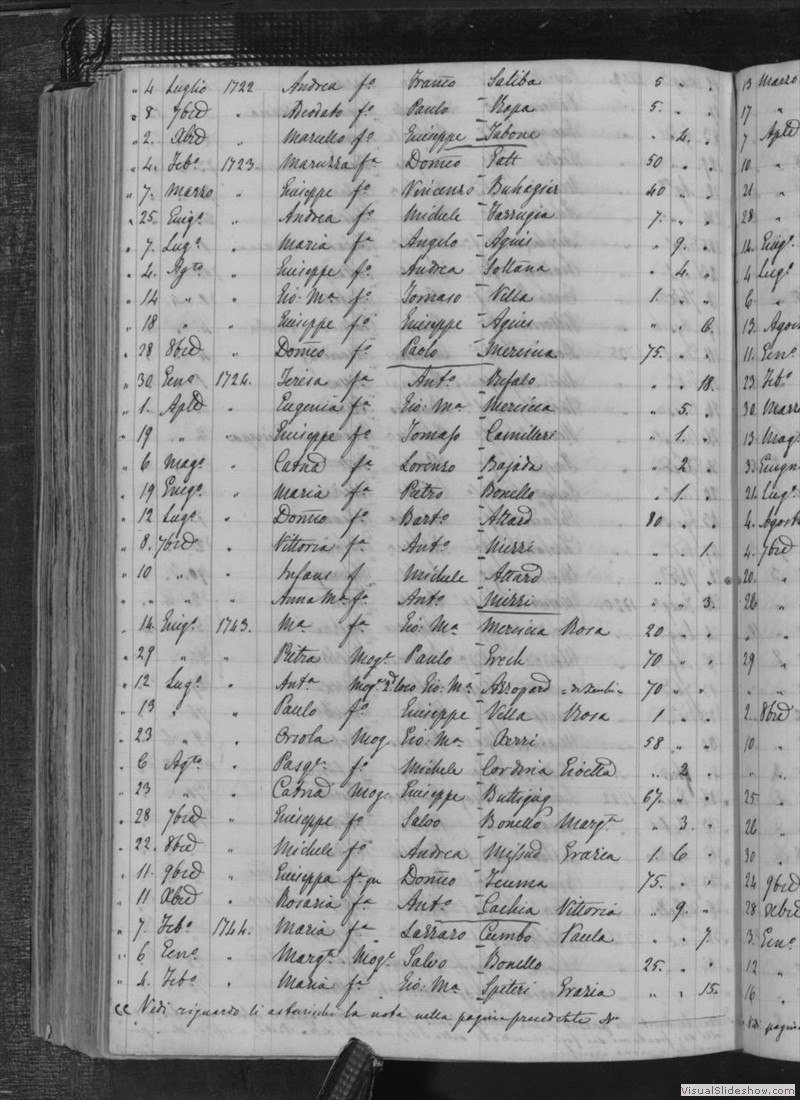 " 4 Luglio 1722 Andrea fo. Franco Saliba 5 " "
" 8 7bre " Deodato fo. Paulo Xapa 5. " "
" 2. Xbre " Marcello fo. Giuseppe Tabone " 4. "
" 4. Feb° 1723. Maruzza fa Domco Fatt 50 " "
" 7. Marzo " Giuseppe fo. Vincenzo Buhagiar 40 " "
" 25. Giug° " Andrea fo. Michele Farrugia 7. " "
" 7. Lug° " Maria fa Angelo Agius " 9. "
" 4. Agto " Giuseppe fo. Andrea Soltana " 4. "
" 14 " " Gio: Ma fo. Tomaso Vella 1. " "
" 18 " " Giuseppe fo. Giuseppe Agius " " 6.
" 28 8bre " Domco fo. Paolo Mercieca 75. " "
" 30 Genº 1724. Teresa fa Anto Bufalo " " 18.
" 1. Aple " Eugenia fa Gio: Ma Mercieca " 5. "
" 19 " " Giuseppe fo. Tomaso Camilleri " 1. "
" 6 Mago " Catna fa Lorenzo Bajada " 2 "
" 19 Giug° " Maria fa Pietro Bonello " 1. "
" 12 Lug° " Domco fo. Barto Attard 80 " "
" 8. 7bre " Vittoria fa Anto Mizzi " " 1.
" 10 " " Infans f. Michele Attard " " "
" " " " Anna Ma fa Anto Mizzi " " 3.
" 14. Giug° 1743. Ma fa Gio: Ma Mercieca Rosa 20 " "
" 29 " " Pietra Moge Paulo Grech 70 " "
" 12 Lug° " Anta Moge 2° loco Gio: Ma Azzopard 70 " "
" 13 " " Paulo fo. Giuseppe Vella Rosa 1 " "
" 23 " " Orsola Mog Gio: Ma Xerri 58 " "
" 6 Agto " Pasqe fo. Michele Cordina Gioella " 2 "
" 23 " " Catna Mog. Giuseppe Buttigieg 67. " "
" 28 7bre " Giuseppe fo Salvo Bonello Margta " 3. "
" 22. 8bre " Michele fo. Andrea Missud Grazia 1. 6 "
" 11. 9bre " Giuseppa fa qm Domco Teuma 75. " "
" 11 Xbre " Rosaria fa Anto Cachia Vittoria " 9. "
" 7. Feb° 1744. Maria fa Lazzaro Cumbo Paula " " 7.
" 6 Gen° " Margta Moge Salvo Bonello 25. " "
" 4. Feb° " Maria fa Gio: Ma Spiteri Grazia " " 15.
Vedi riguardo li asterischi la nota nella pagina precedente
13 Marzo
17 "
7 Aple
10 "
21 "
28 "
14. Giug°
4 Lug°
6 "
13. Agos
11. Gen°
23. Feb°
30. Marz
13. Mag°
3. Giugn
21. Lug°
4. Agost
4. 7bre
20. "
26 "
" "
29 "
" "
2. 8bre
10 "
25 "
26 "
30 "
24 9bre
28 Xbre
3. Gen°
12 "
16 "
Vedi pagina
VisualSlideshow.com